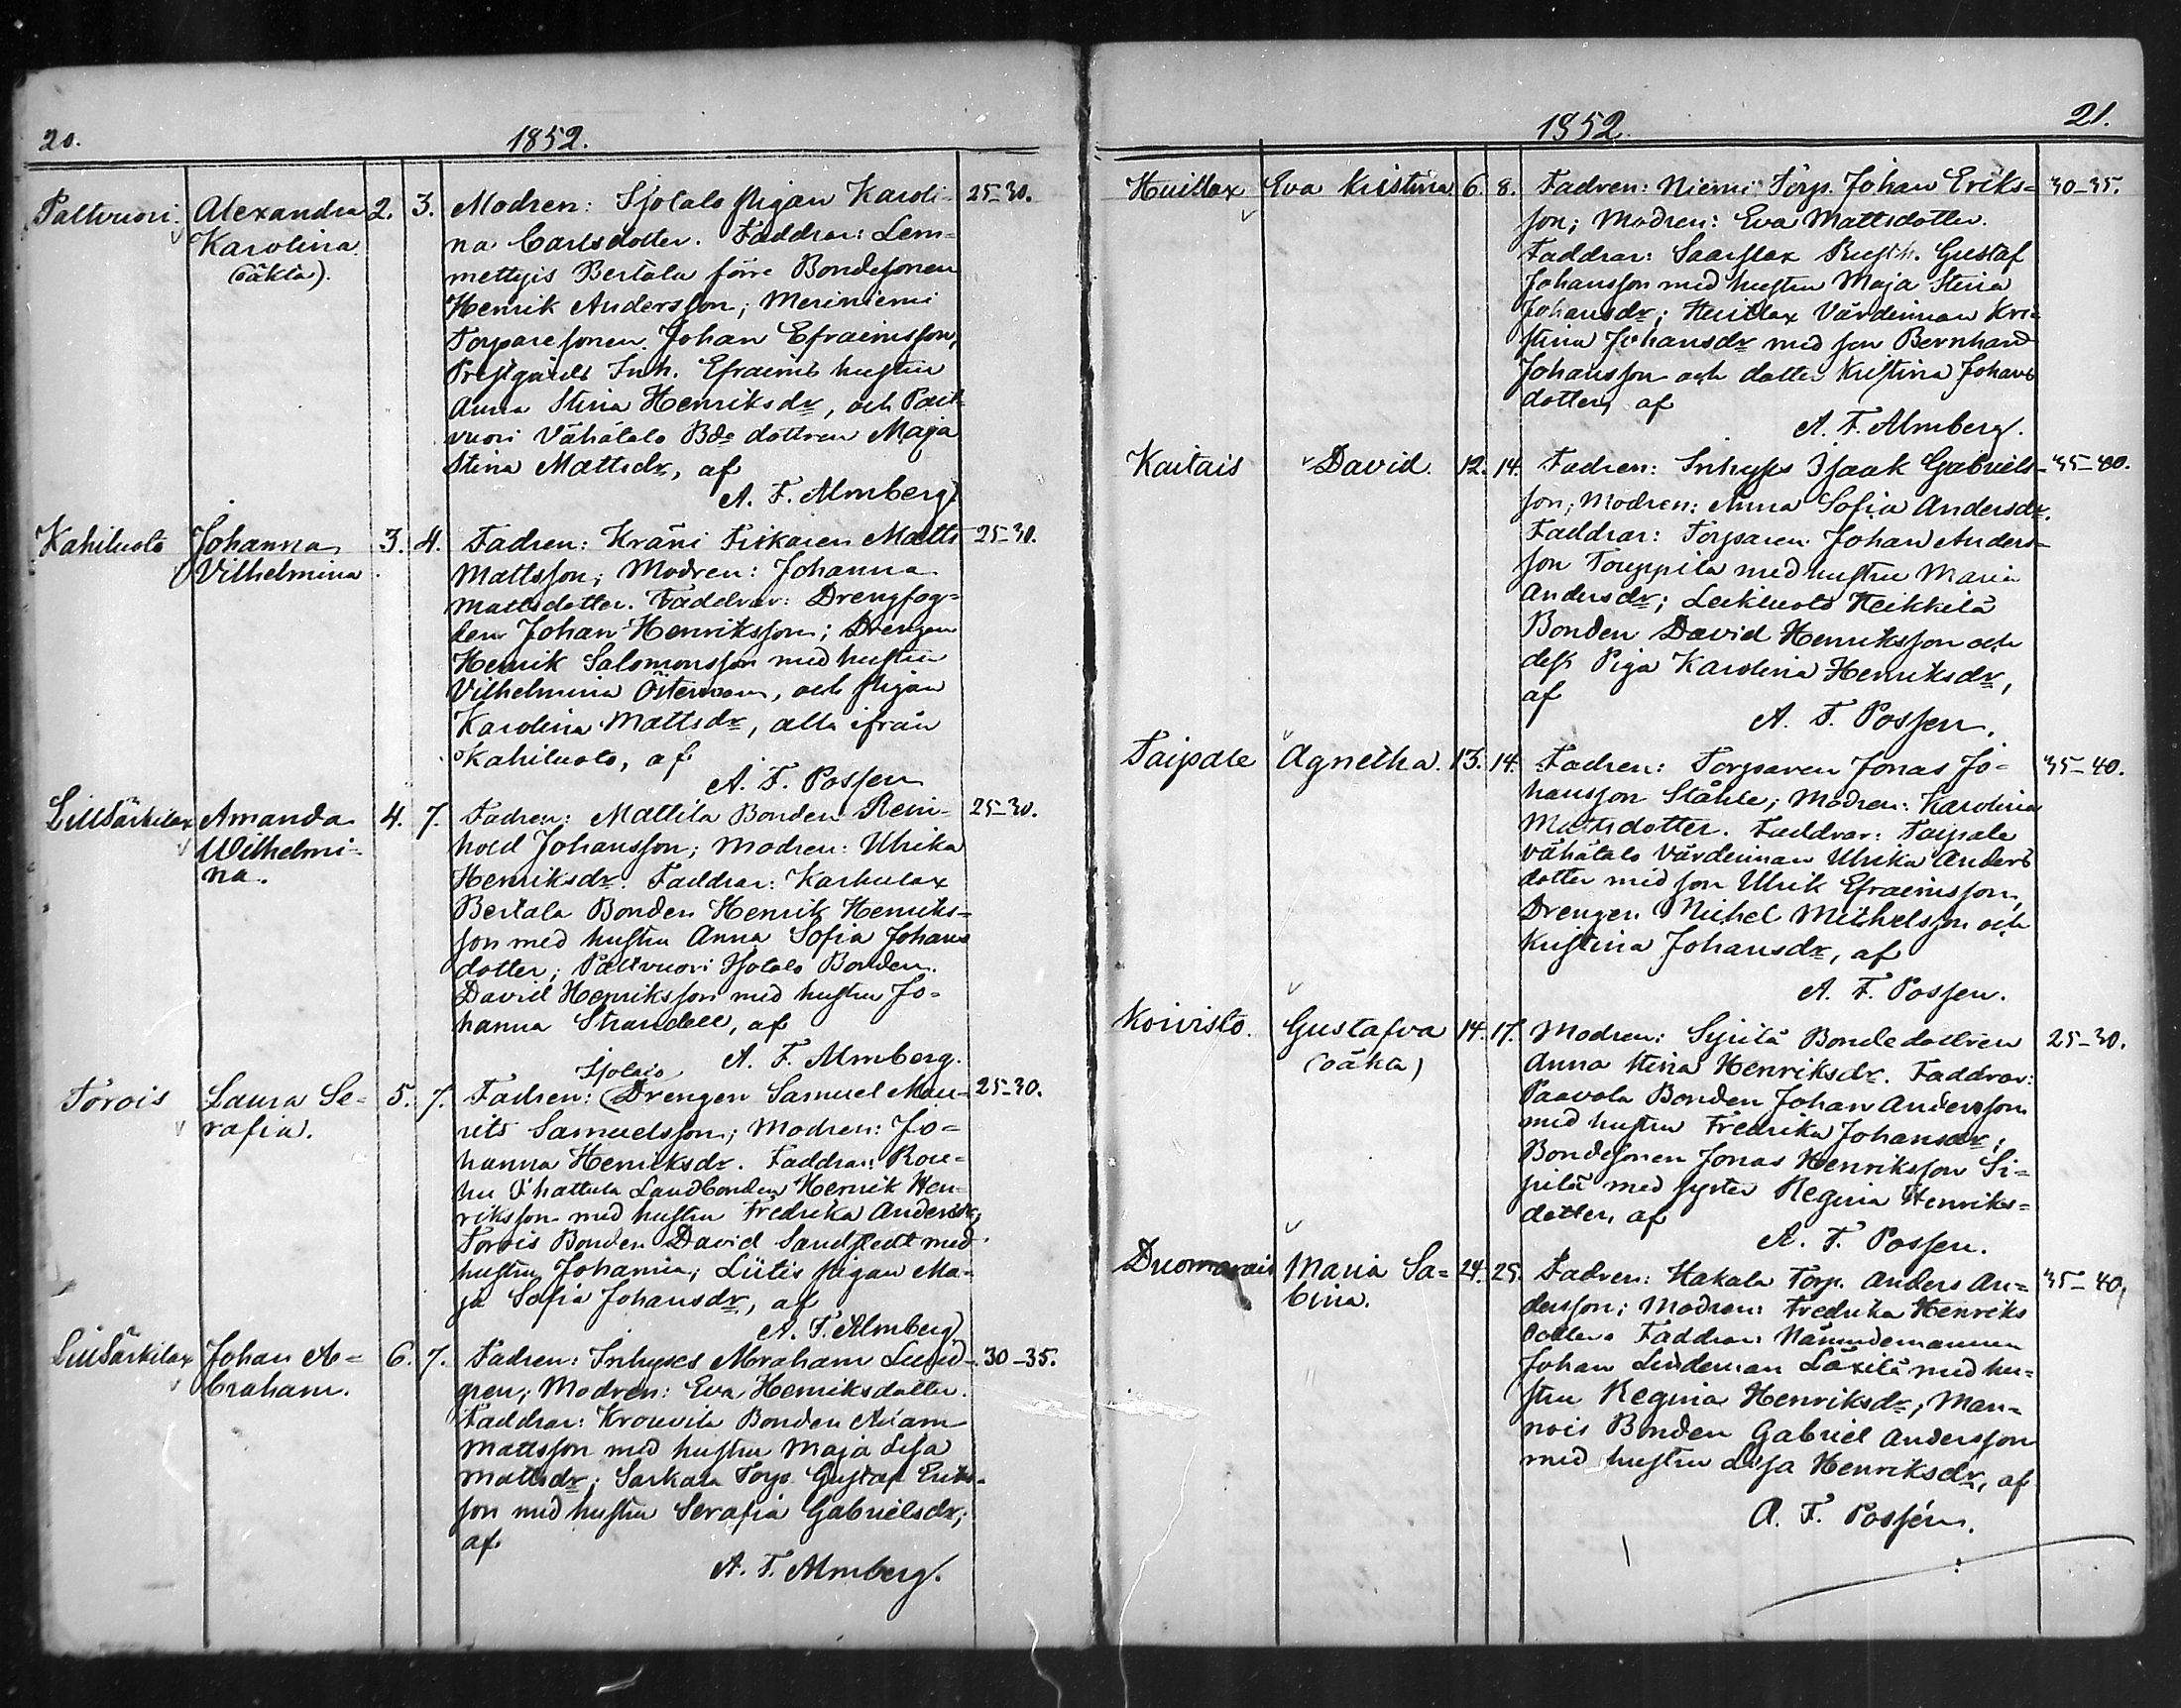 20.
1852.
Paltvuori. Alexandra 2. 3. Modren: Isotalo pigan Karoli- 25-30.
Karolina na Carlsdotter. Faddrar: Lem-
(oäkta). mettyis Bertala förre Bondesonen
Henrik Andersson; Meriniemi
Torparesonen Johan Efraimsson,
Prestgårds Inh. Efraims hustru
Anna Stina Henriksdr, och Palt-
vuori Vähätalo Bde dottren Maja
Stina Mattsdr, af
A. F. Almberg.
Kahiluoto Johanna 3. 4. Fadren: Kräni Fiskaren Matts 25-30.
Vilhelmina Mattsson; Modren: Johanna
Mattsdotter. Faddrar: Drengfog-
den Johan Henriksson; Drengen
Henrik Salomonsson med hustru
Vilhelmina Österman, och pigan
Karolina Mattsdr, alla ifrån
Kahiluoto, af
A. F. Possen
LillSärkilax Amanda 4. 7. Fadren: Mattila Bonden Rein- 25-30.
Wilhelmi- hold Johansson; Modren: Ulrika
na. Henriksdr. Faddrar: Karhulax
Bertala Bonden Henrik Henriks-
son med hustru Anna Sofia Johans
dotter; Paltvuori Isotalo Bonden
David Henriksson med hustru Jo-
hanna Strandell, af
A. F. Almberg.
Isotalo
Torois Laura Se- 5. 7. Fadren: Drengen Samuel Mau- 25-30.
rafia. rits Samuelsson; Modren: Jo-
hanna Henriksdr. Faddrar: Rou-
hu Ohattula Landbonden Henrik Hen-
riksson med hustru Fredrika Andersdr;
Torois Bonden David Sandstedt med
hustru Johanna; Liitis pigan Ma-
ja Sofia Johansdr, af
A. F. Almberg
LillSärkilax Johan A- 6. 7. Fadren: Inhyses Abraham Lund- 30-35.
braham. gren; Modren: Eva Henriksdotter.
Faddrar: Krouvila Bonden Adam
Mattsson med hustru Maja Lisa
Mattsdr; Sarkala Torp. Gustaf Eriks-
son med hustru Serafia Gabrielsdr,
af
A. F. Almberg.
1852.
21.
Huitlax Eva Kristina. 6. 8. Fadren: Niemi Torp. Johan Eriks- 30-35.
son; Modren: Eva Mattsdotter.
Faddrar: Saarslax Rusth. Gustaf
Johansson med hustru Maja Stina
Johansdr; Huitlax Värdinnan Kri-
stina Johansdr med son Bernhard
Johansson och dotter Kristina Johans
dotter, af
A. F. Almberg.
Kaitais David. 12. 14. Fadren: Inhyses Isaak Gabriels- 35-40.
son; Modren: Anna Sofia Andersdr.
Faddrar: Torparen Johan Anders-
son Touppila med hustru Maria
Andersdr; Leikluoto Heikkilä
Bonden David Henriksson och
dess Piga Karolina Henriksdr,
af
A. F. Possen.
Taipale Agnetha. 13. 14. Fadren: Torparen Jonas Jo- 35-40.
hansson Ståhle; Modren: Karolina
Mattsdotter. Faddrar: Taipale
Vähätalo Värdinnan Ulrika Anders
dotter med son Ulrik Efraimsson,
Drengen Michel Michelsson och
Kristina Johansdr, af
A. F. Possen.
Koivisto. Gustafva 14. 17. Modren: Sipilä Bondedottren 25-30.
(oäkta) Anna Stina Henriksdr. Faddrar:
Paavola Bonden Johan Andersson
med hustru Fredrika Johansdr;
Bondesonen Jonas Henriksson Si-
pilä med syster Regina Henriks-
dotter, af
A. F. Possen.
Duomarais Maria Sa- 24. 25. Fadren: Hakala Torp. Anders An- 35-40.
bina. dersson; Modren: Fredrika Henriks
dotter. Faddrar: Nämndemannen
Johan Lindeman Laxilä med hu-
stru Regina Henriksdr; Man-
nois Bonden Gabriel Andersson
med hustru Lisa Henriksdr, af
A. F. Possén.